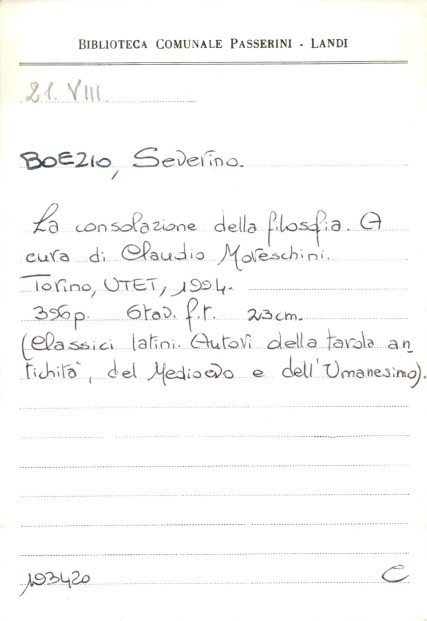 BIBLIOTECA COMUNALE PASSERINI - LANDI
21. VIII
BOEZIO, Severino.
La consolazione della filosofia. A
cura di Claudio Moreschini.
Torino, UTET, 1994.
396p. 6tav. f.t. 23cm.
(Classici latini. Autori della tarola an_
tichità, del Medioevo e dell'Umanesimo).
193420 C